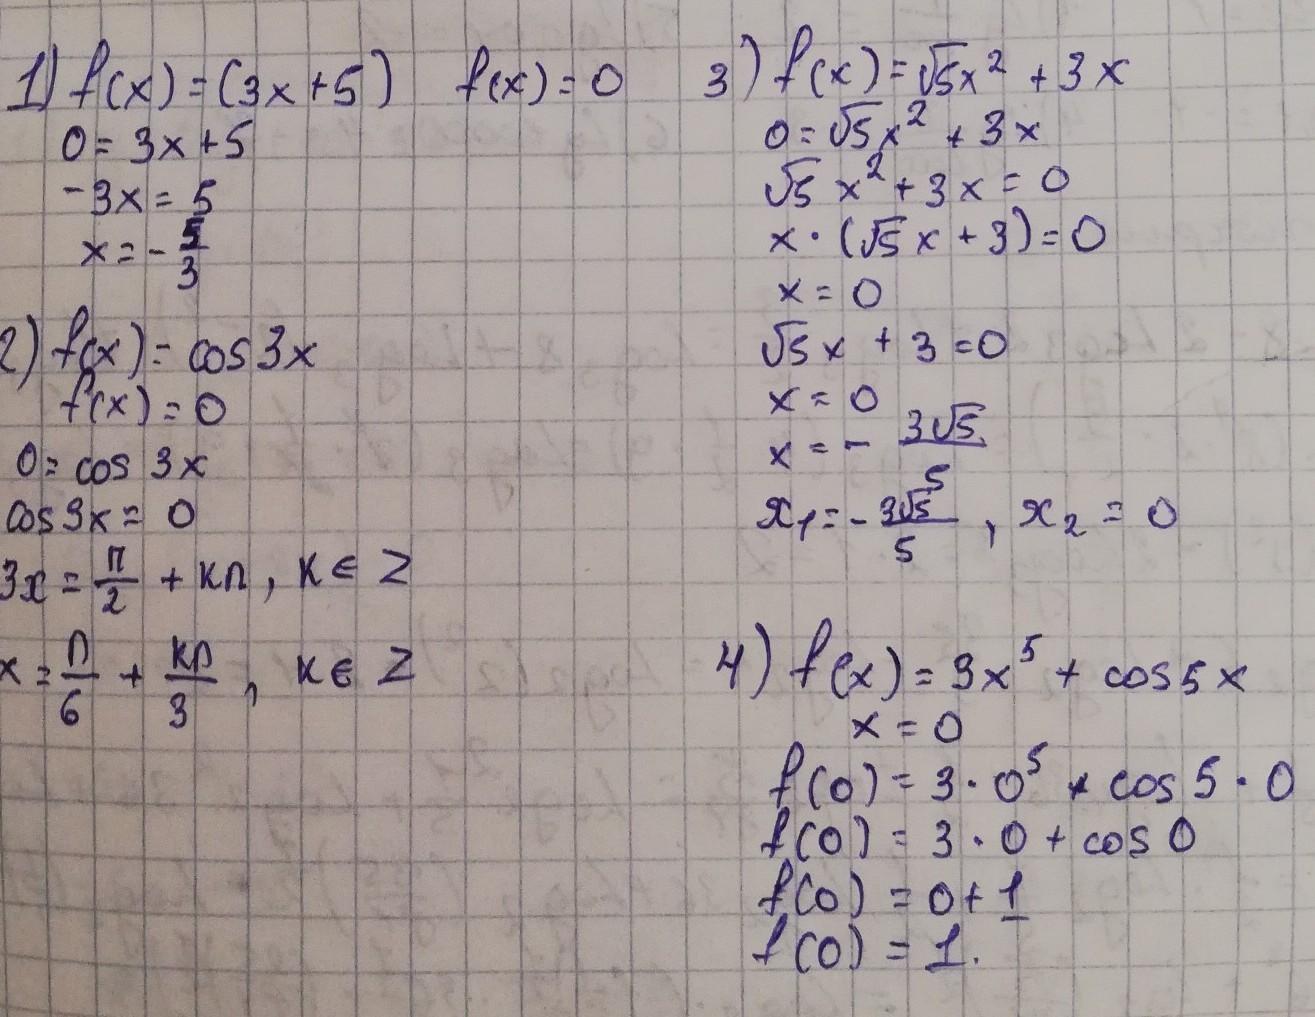 1) f(x) = (3x+5)    f(x) = 0
0 = 3x + 5
-3x = 5
x = - 5/3
2) f(x) = cos 3x
f(x) = 0
0 = cos 3x
cos 3x = 0
3x = п/2 + кп, к ∈ Z
x = п/6 + кп/3, к ∈ Z
3) f(x) = √5x² + 3x
0 = √5x² + 3x
√5 x² + 3x = 0
x · (√5 x + 3) = 0
x = 0
√5 x + 3 = 0
x = 0
x = - 3√5/5
x₁ = - 3√5/5, x₂ = 0
4) f(x) = 3x⁵ + cos 5x
x = 0
f(0) = 3 · 0⁵ + cos 5 · 0
f(0) = 3 · 0 + cos 0
f(0) = 0 + 1
f(0) = 1.